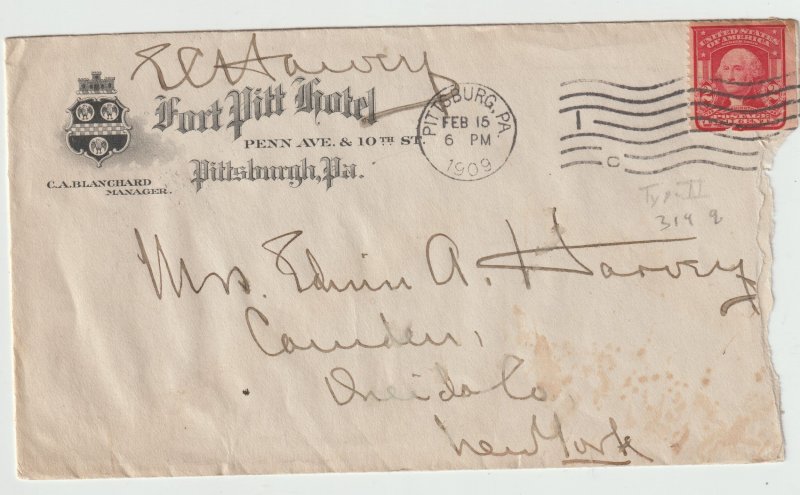 E A Harvey
Fort Pitt Hotel
PENN AVE. & 10TH ST.
Pittsburgh, Pa.
C.A. BLANCHARD
MANAGER.
PITTSBURG, PA.
FEB 15
6 PM
1909
1
C
UNITED STATES
OF AMERICA
POSTAGE
Type II
319
Mrs. Edwin A. Harvey
Camden,
Oneida Co,
New York